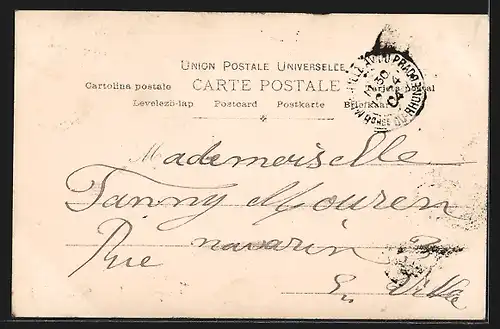 UNION POSTALE UNIVERSELLE
Cartolina postale CARTE POSTALE Tarjeta postal
Levelezö-lap Postcard Postkarte Briefkaart
MARSEILLE PRADO
BCHES-DU-RHONE
Mademoiselle
Fanny Mouren
Rue navarin 3
En Ville